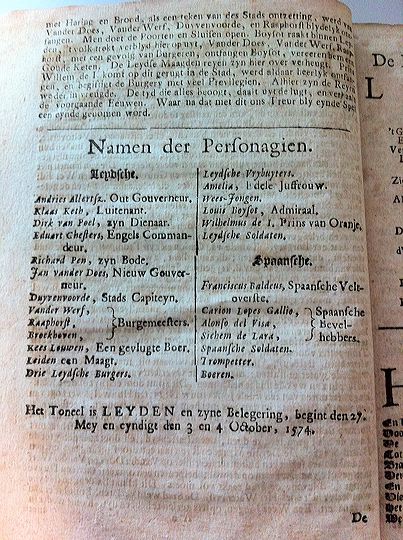 met Haring en Brood, als een teken van des Stads ontzetting, werd van
Vander Does, Vander Werf, Duyvenvoorde, en Raaphorst blydelyk ont-
fangen. Men doet de Poorten en Sluisen open. Boysot raakt binnen
't volk trekt verblyd hier op uyt, Vander Does, Vander Werf, Raap-
horst, met een gevolg van Burgeren, ontfangen Boysot, vereeren hem een
Goude Keten. De Leydse Maagden reyen zyn hier over verheugt. Prins
Willem de I. komt op dit gerugt in de Stad, werd aldaar heerlyk ontfan-
gen, en begiftigt de Burgery met veel Privilegien. Alhier zyn de Reyen
weder in vreugde. De tyd die alles beoogt, daalt uyt de lugt, en verhaalt
de voorgaande Eeuwen. Waar na dat met dit ons Treur bly eynde Spel
een eynde genomen word.
Namen der Personagien.
Leydsche.
Andries Allertsz. Out Gouverneur.
Klaas Keth, Luitenant.
Dirk van Poel, zyn Dienaar.
Eduart Chesters, Engels Comman-
deur.
Richard Pen, zyn Bode.
Jan vander Does, Nieuw Gouver-
neur.
Duyvenvoorde, Stads Capiteyn.
Vander Werf,
Raaphorst, Burgemeesters.
Broekhoven,
Kees Louwen, Een gevlugte Boer.
Leiden een Maagt.
Drie Leydsche Burgers.
Leydsche Vrybuyters.
Amelia, Edele Juffrouw.
Wees-Jongen.
Louis Boysot, Admiraal.
Wilhelmus de I. Prins van Oranje.
Leydsche Soldaten.
Spaansche.
Franciscus Baldeus, Spaansche Velt-
overste.
Carion Lopes Gallio, Spaansche
Alonso del Visa, Bevel-
Sichem de Lara, hebbers.
Spaansche Soldaten.
Trompetter.
Boeren.
Het Toneel is LEYDEN en zyne Belegering, begint den 27.
Mey en eyndigt den 3 en 4 October, 1574.
De